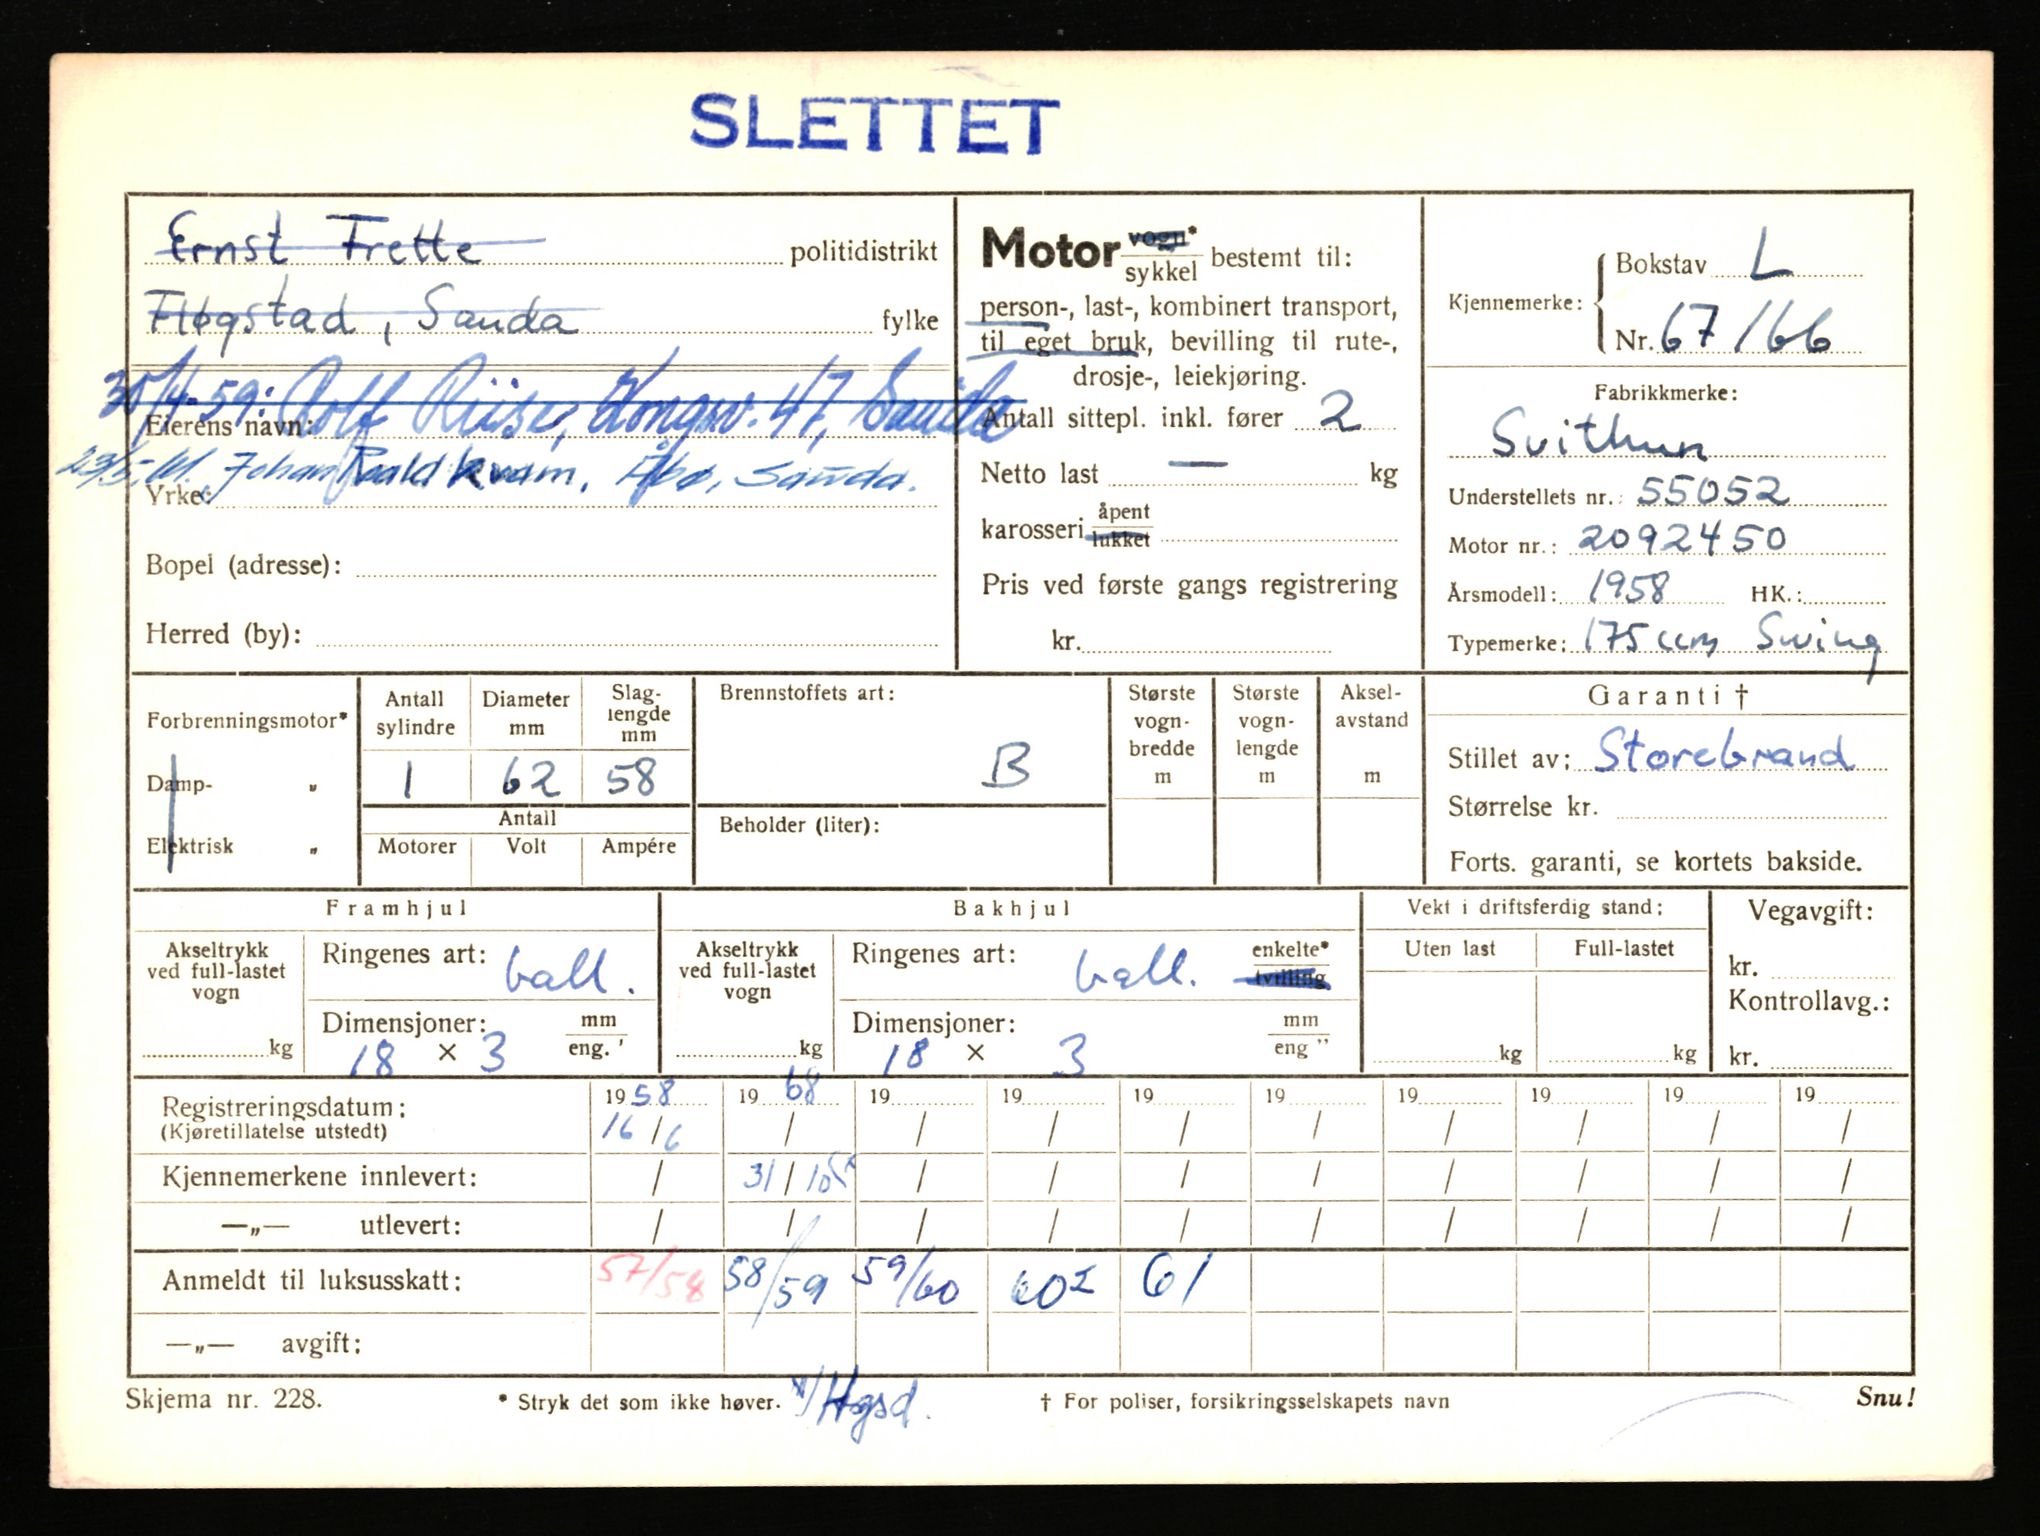 SLETTET
Ernst Frette politidistrikt
Fløgstad, Sauda fylke
30/4-59: Rolf Riise, Kongsv. 47, Sauda
Eierens navn:
23/5-61. Johan Roald Kvam, Åbø, Sauda.
Yrke:
Bopel (adresse):
Herred (by):
Motor vogn* sykkel bestemt til:
person-, last-, kombinert transport,
til eget bruk, bevilling til rute-,
drosje-, leiekjøring.
Antall sittepl. inkl. fører 2
Netto last — kg
karosseri åpent lukket
Pris ved første gangs registrering
kr.
Kjennemerke: Bokstav L
Nr. 67166
Fabrikkmerke:
Svithun
Understellets nr.: 55052
Motor nr.: 2092450
Årsmodell: 1958 HK.:
Typemerke: 175 ccm Swing
Forbrenningsmotor*
Damp- „
Elektrisk „
Antall sylindre Diameter mm Slag-lengde mm
1 62 58
Antall
Motorer Volt Ampére
Brennstoffets art:
B
Beholder (liter):
Største vogn-bredde m
Største vogn-lengde m
Aksel-avstand m
Garanti †
Stillet av: Storebrand
Størrelse kr.
Forts. garanti, se kortets bakside.
Framhjul
Akseltrykk ved full-lastet vogn
kg
Ringenes art: ball.
Dimensjoner: mm eng. '
18 × 3
Bakhjul
Akseltrykk ved full-lastet vogn
kg
Ringenes art: ball. enkelte* tvilling
Dimensjoner: mm eng "
18 × 3
Vekt i driftsferdig stand:
Uten last Full-lastet
kg kg
Vegavgift:
kr.
Kontrollavg.:
kr.
Registreringsdatum: 1958 1968 19 19 19 19 19 19 19 19
(Kjøretillatelse utstedt) 16/6 / / / / / / / / /
Kjennemerkene innlevert: / 31/10 / / / / / / / /
—„— utlevert: / / / / / / / / / /
Anmeldt til luksusskatt: 57/58 58/59 59/60 60 61
—„— avgift:
Skjema nr. 228. * Stryk det som ikke høver. Hgsd. † For poliser, forsikringsselskapets navn Snu!